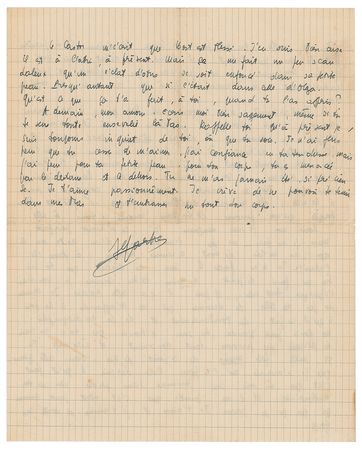 le Castor m'écrit que Bost est blessé. J'en suis bien aise
il est à l'abri, à présent. Mais ça me fait un peu scan
daleux qu'un éclat d'obus se soit enfoncé dans sa petite
peau. Presqu'autant que si c'était dans celle d'Olga.
Qu'est ce que ça t'a fait, à toi, quand tu l'as appris?
A demain, mon amour. écris moi bien sagement, même si tu
te sens toute ensevelie là-bas. Rappelle toi qu'à présent je
suis toujours inquiet de toi, où que tu sois. Je n'ai pas
peur que tu cesses de m'aimer, j'ai confiance en ta tendresse, mais
j'ai peur pour ta petite peau, pour ton corps, tu es menacée
par le dedans et le dehors. Tu ne m'as jamais été si précieu
se. Je t'aime passionnément. Je crève de ne pouvoir te tenir
dans mes bras et t'embrasser sur tout ton corps.
JPSartre